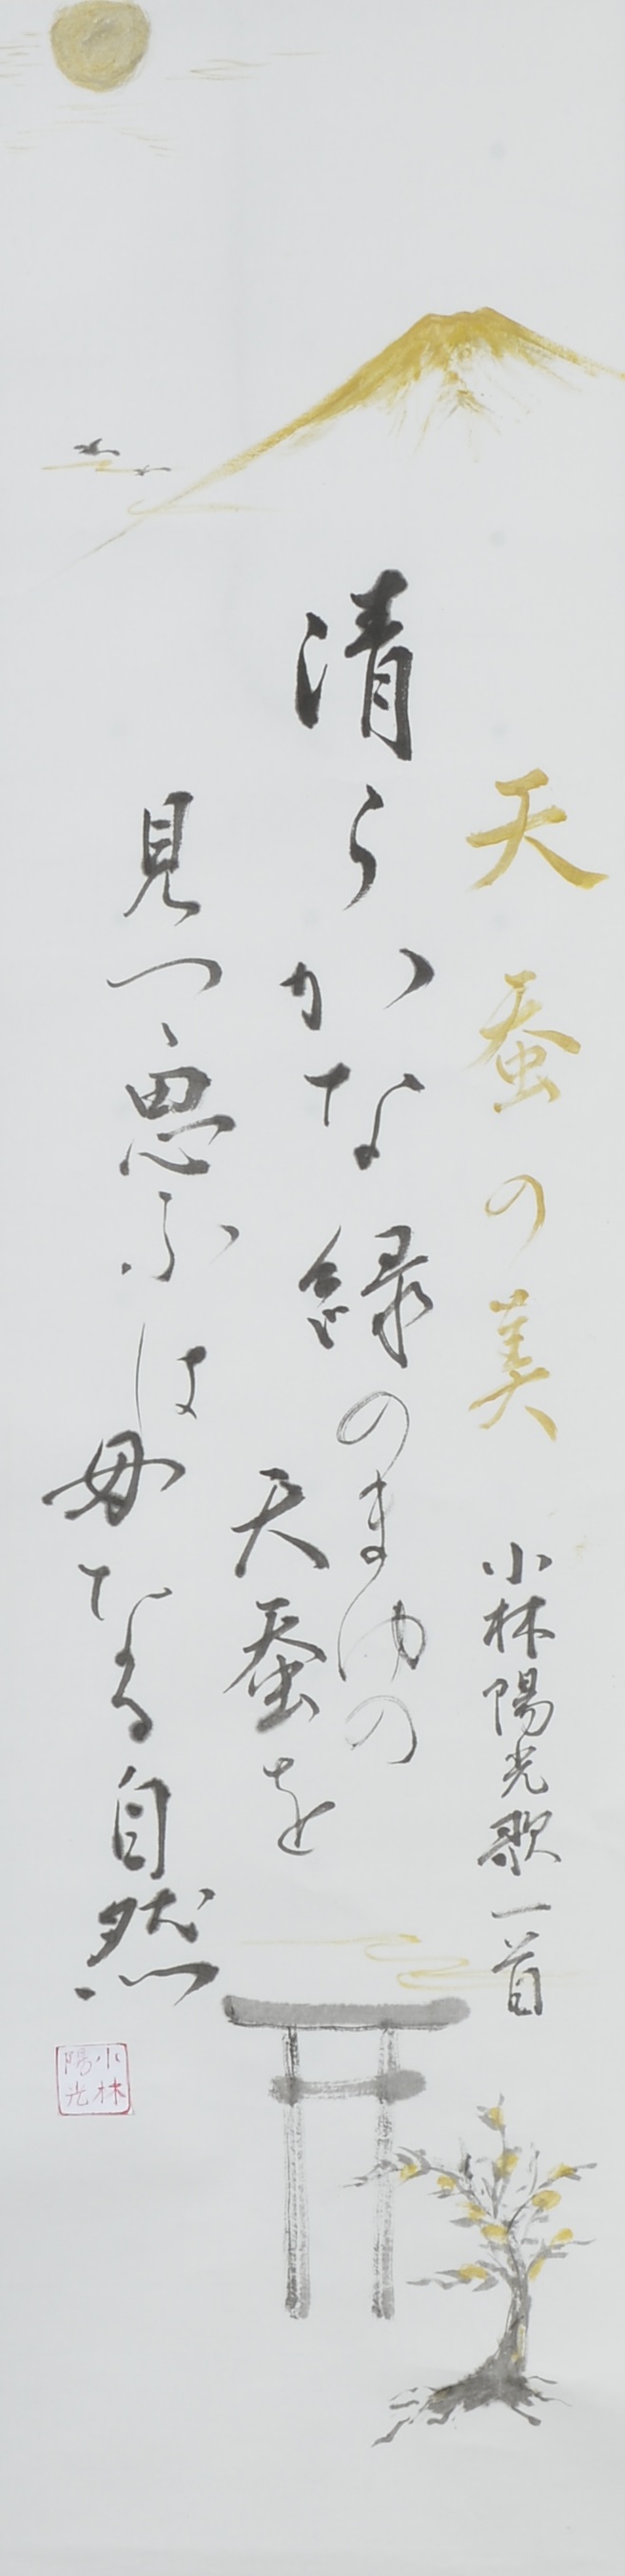 天蚕の美
小林陽光歌一首
清らかな緑のまゆの
天蚕を
見つゝ思ふは母なる自然
小林
陽光